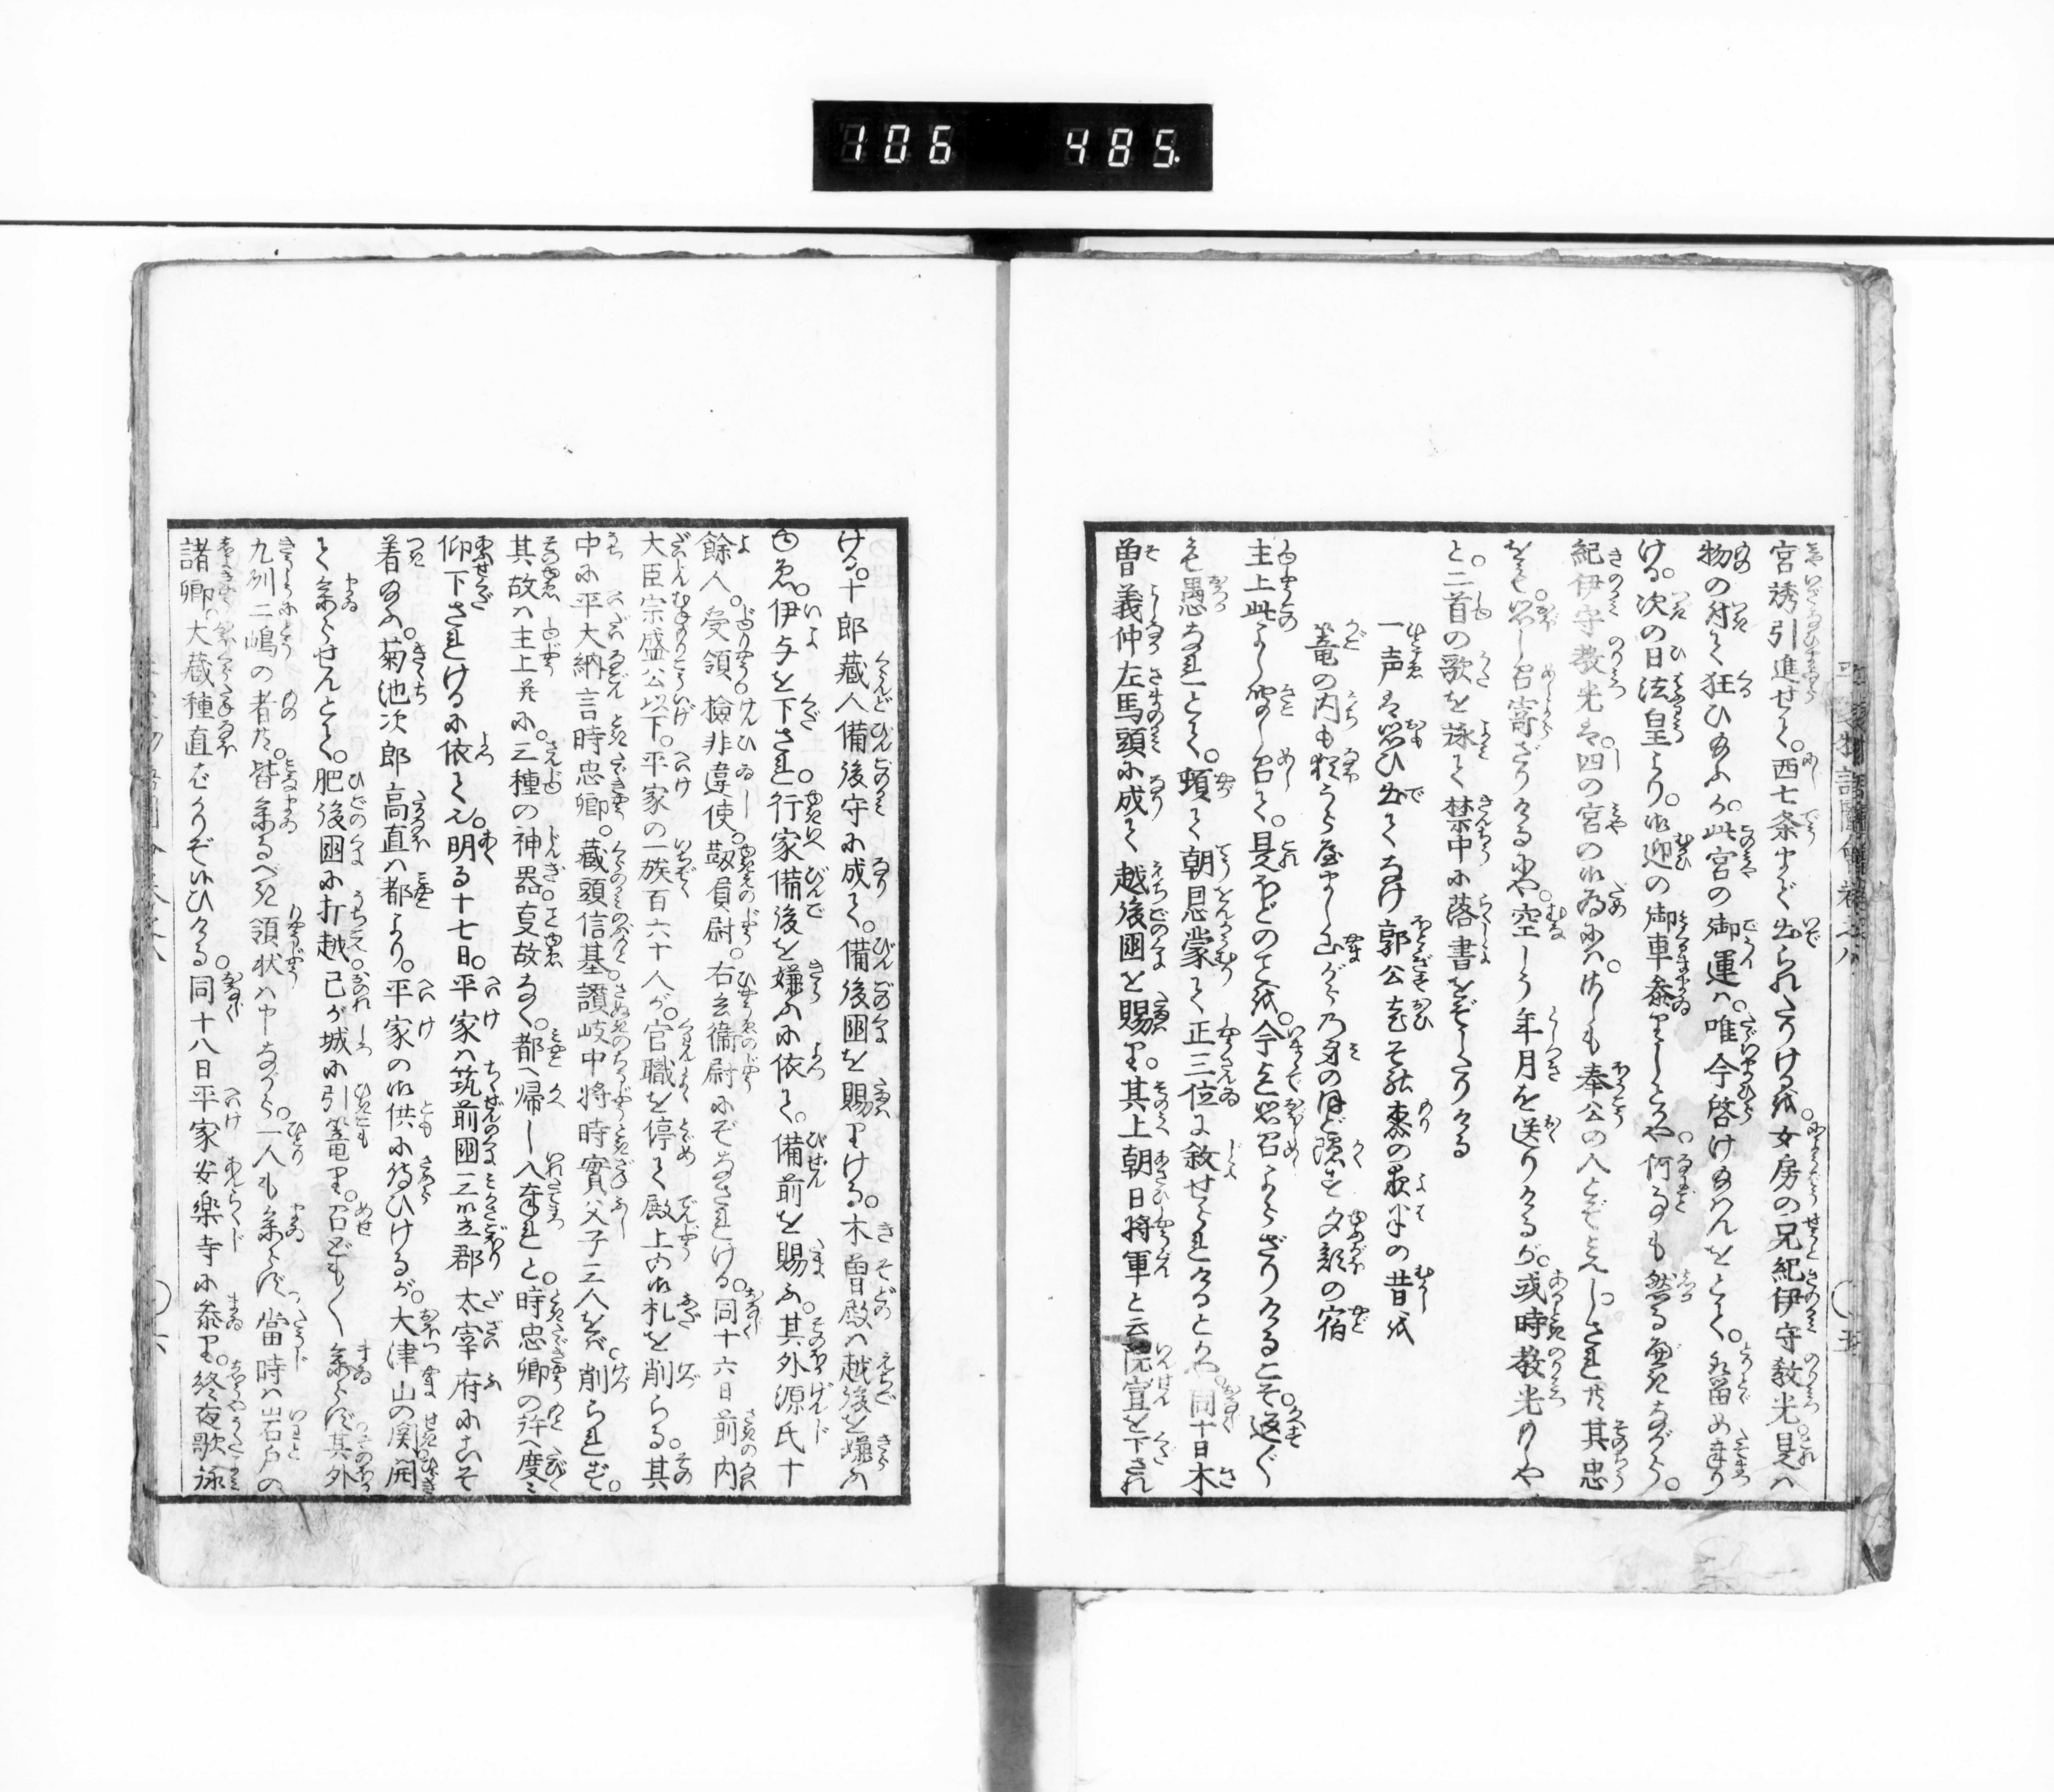 106 485.
宮誘引進せて。西七条まで出られたりけるを。女房の兄紀伊守教光。見へ
物の付て狂ひ給ふか。此宮の御運は。唯今啓け給はんをとて。取留め奉り
ける。次の日法皇より。御迎の御車参りしとかや。何事も然る可きながら。
紀伊守教光は。四の宮の御為には。さしも奉公の人とぞ見えし。されども其忠
をも。思し召寄ざりけるにや。空しう年月を送りけるが。或時教光のりや
と。二首の歌を詠て禁中に落書をぞしたりける
一声は思ひ出てなけ郭公老その森の夜半の昔を
篭の内も猶うらやまし山がらの身のほど隠す夕顔の宿
主上此よし聞し召て。是ほどの事を。今迄思召よらざりけるこそ。返す〳〵
も愚なれとて。頓て朝恩蒙て正三位に叙せられけるとかや。同十日木
曽義仲左馬頭に成て越後国を賜り。其上朝日将軍と云院宣を下され
ける。十郎蔵人備後守に成て。備後国を賜りける。木曽殿は越後を嫌ふ
由ゑ。伊与を下され。行家備後を嫌ふに依て。備前を賜ふ。其外源氏十
餘人。受領検非違使。靱負尉。右兵衛尉にぞなされける。同十六日前内
大臣宗盛公以下。平家の一族百六十人が。官職を停て殿上の御札を削らる。其
中に平大納言時忠卿。蔵頭信基。讃岐中将時實父子三人をば。削られず。
其故は主上并に。三種の神器事故なく。都へ帰し入奉れと。時忠卿の許へ度々
仰下されけるに依て也。明る十七日。平家は筑前國三笠郡太宰府にこそ
着給ふ。菊池次郎高直は都より。平家の御供に候ひけるが。大津山の関開
て参らせんとて。肥後國に打越己が城に引篭り。召ども〳〵参らず。其外
九州二嶋の者共。皆参るべき領状は申ながら。一人も参らず。當時は岩戸の
諸卿。大蔵種直ばかりぞ候ひける。同十八日平家安楽寺に参り。終夜歌詠